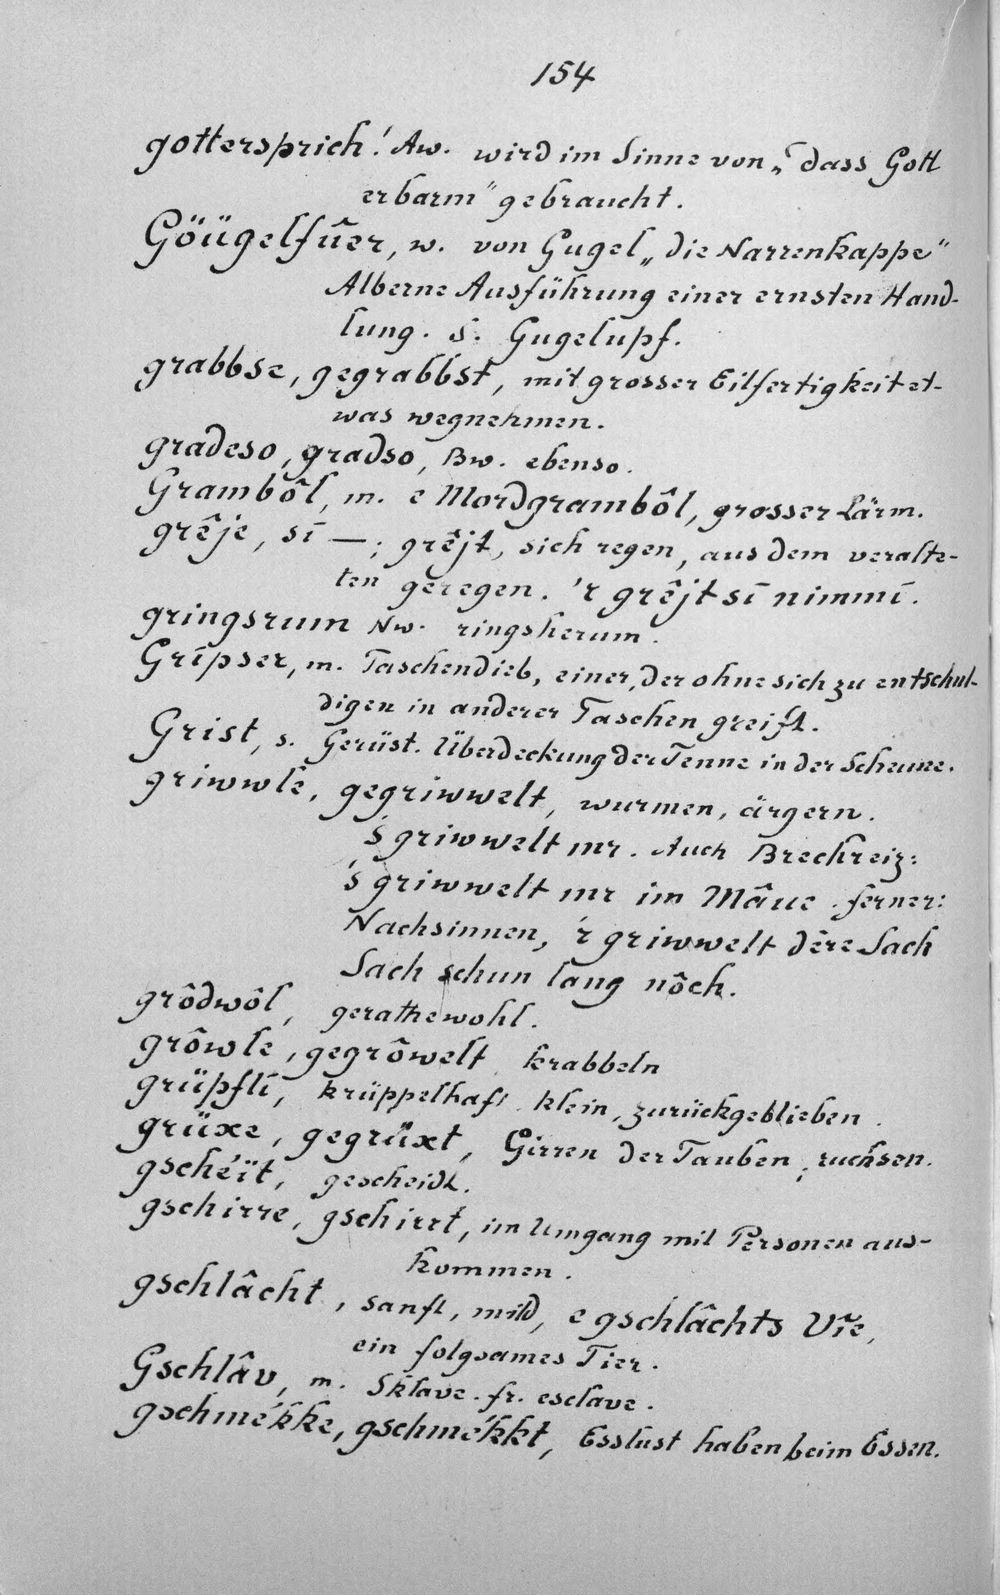 154
gottersprich! Aw. wird im Sinne von „dass Gott
erbarm" gebraucht.
Göügelfûer, w. von Gugel „die Narrenkappe"
Alberne Ausführung einer ernsten Hand-
lung. s. Gugelupf.
grabbse, gegrabbst, mit grosser Eilfertigkeit et-
was wegnehmen.
gradeso, gradso, Bw. ebenso.
Grambôl, m. e Mordgrambôl, grosser Lärm.
grêje, sī —; grêjt, sich regen, aus dem veralte-
ten geregen. 'r grêjt sī nimmī.
gringsrum Nw. ringsherum.
Grīpser, m. Taschendieb, einer, der ohne sich zu entschul-
digen in anderer Taschen greift.
Grist, s. Gerüst. Überdeckung der Tenne in der Scheune.
griwwle, gegriwwelt, wurmen, ärgern.
's griwwelt mr. Auch Brechreiz:
's griwwelt mr im Mâue. ferner:
Nachsinnen, 'r griwwelt dêre Sach
Sach schun lang nôch.
grôdwôl, gerathewohl.
grôwle, gegrôwelt, krabbeln
grüpflī, krüppelhaft klein, zurückgeblieben.
grüxe, gegrüxt, Girren der Tauben, ruchsen.
gschéït, gescheidt.
gschirre, gschirrt, im Umgang mit Personen aus-
kommen.
gschlâcht, sanft, mild, e gschlâchts Vīe,
ein folgsames Tier.
Gschlâv, m. Sklave. fr. esclave.
gschmékke, gschmékkt, Esslust haben beim Essen.